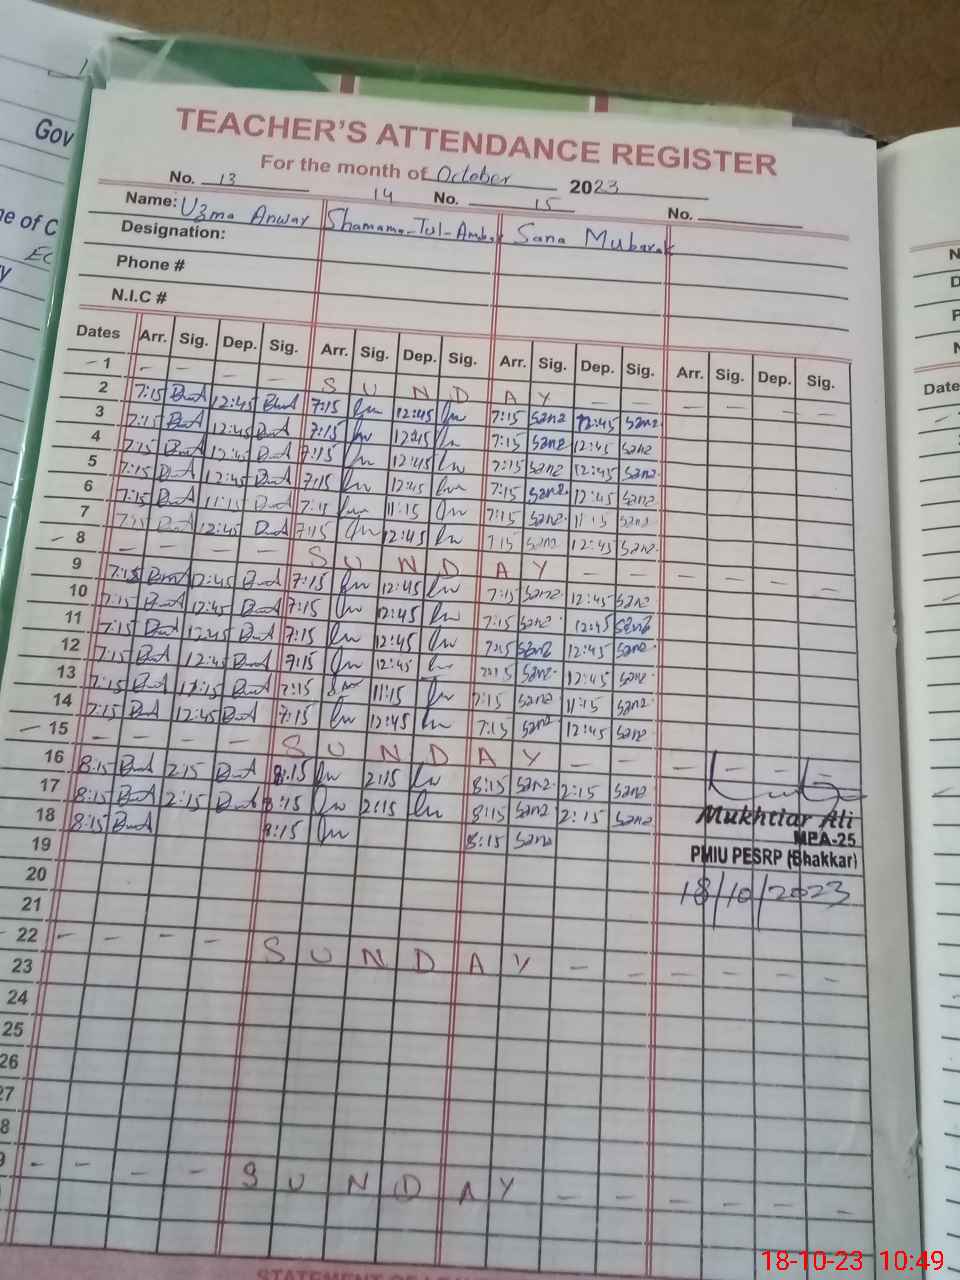 Gov
ne of C
EC
y
TEACHER'S ATTENDANCE REGISTER
For the month of October 2023
No. 13 14 No. 15 No.
Name: Uzma Anwar Shamama-Tul-Amb Sana Mubarak
Designation:
Phone #
N.I.C #
Dates Arr. Sig. Dep. Sig. Arr. Sig. Dep. Sig. Arr. Sig. Dep. Sig. Arr. Sig. Dep. Sig.
1 - - - - S U N D A Y - - - - - -
2 7:15 12:45 7:15 12:45 7:15 Sana 12:45 Sana
3 7:15 12:45 7:15 12:45 7:15 Sana 12:45 Sana
4 7:15 12:45 7:15 12:45 7:15 Sana 12:45 Sana
5 7:15 12:45 7:15 12:45 7:15 Sana 12:45 Sana
6 7:15 11:15 7:15 11:15 7:15 Sana 11:15 Sana
7 7:15 12:45 7:15 12:45 7:15 Sana 12:45 Sana
8 - - - - S U N D A Y - - - - - -
9 7:15 12:45 7:15 12:45 7:15 Sana 12:45 Sana
10 7:15 12:45 7:15 12:45 7:15 Sana 12:45 Sana
11 7:15 12:45 7:15 12:45 7:15 Sana 12:45 Sana
12 7:15 12:45 7:15 12:45 7:15 Sana 12:45 Sana
13 7:15 11:15 7:15 11:15 7:15 Sana 11:15 Sana
14 7:15 12:45 7:15 12:45 7:15 Sana 12:45 Sana
15 - - - - S U N D A Y - - - - - -
16 8:15 2:15 8:15 2:15 8:15 Sana 2:15 Sana
17 8:15 2:15 8:15 2:15 8:15 Sana 2:15 Sana
18 8:15 8:15 8:15 Sana
Mukhtiar Ali
MEA-25
19
PMIU PESRP (Bhakkar)
20
18/10/2023
21
22 - - - - S U N D A Y - - - - - -
23
24
25
26
27
8
9 - - - - S U N D A Y - - - - - -
Date
18-10-23 10:49